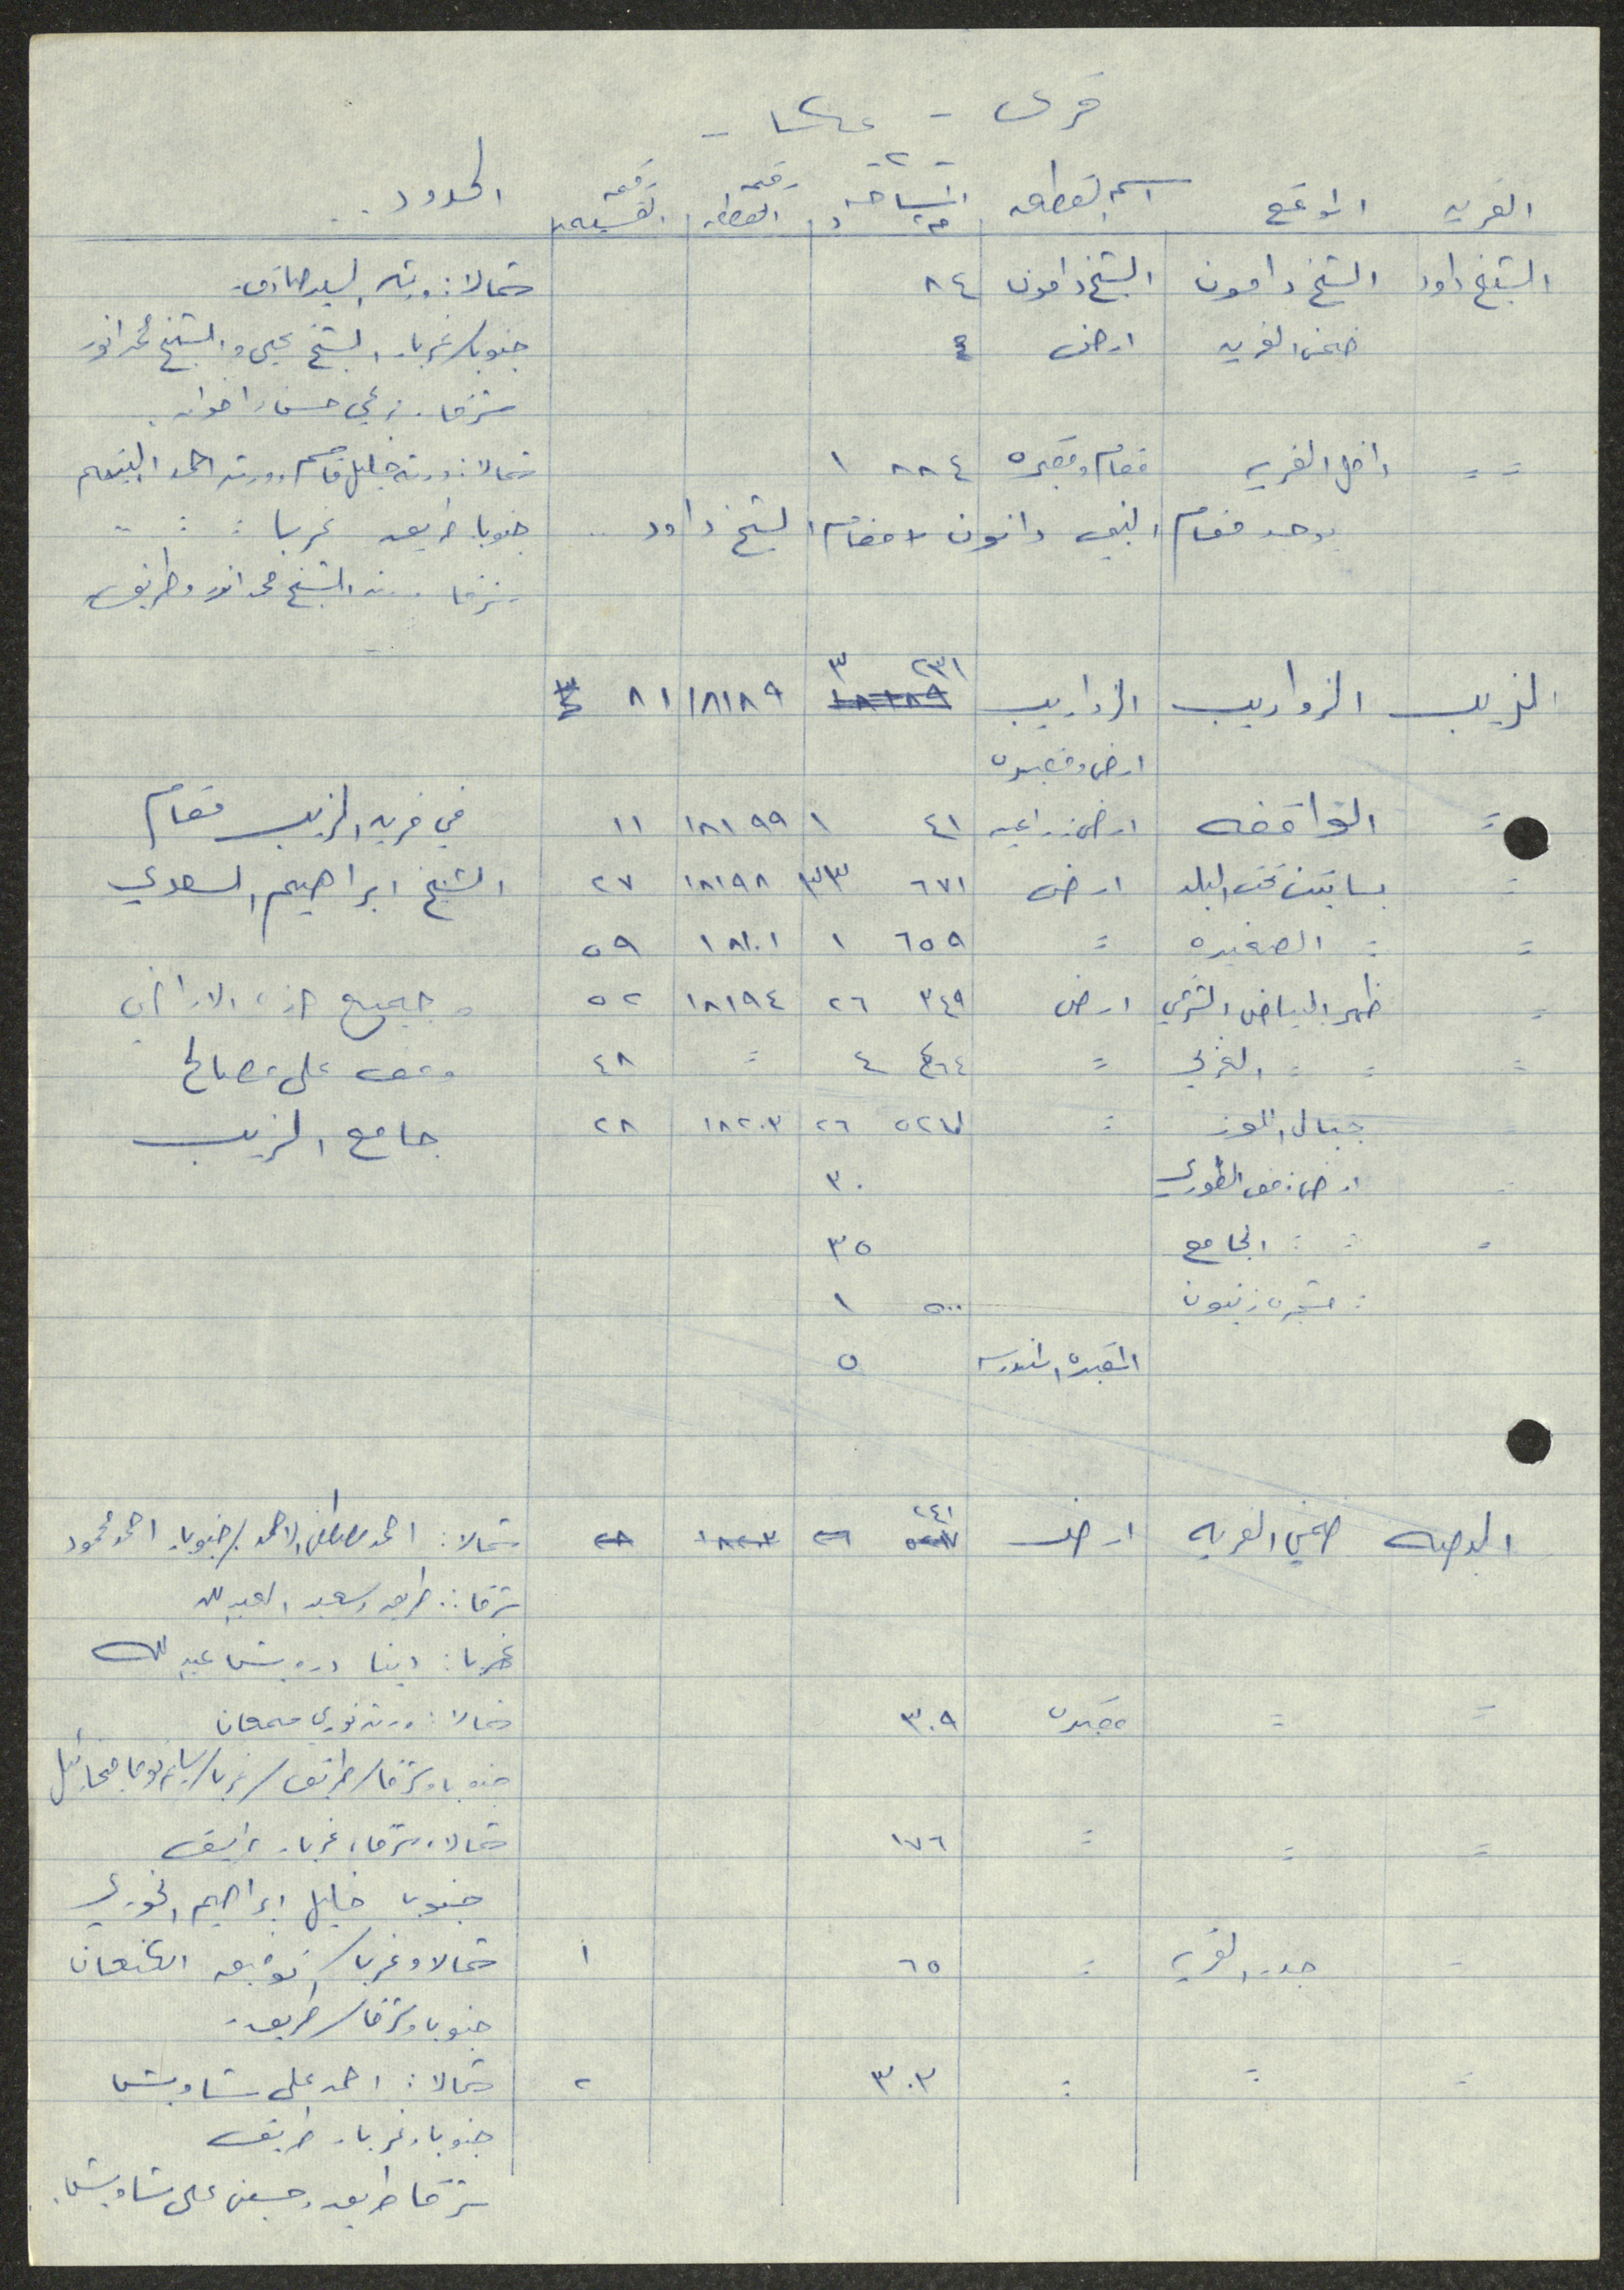 قرى - عكا -
- ٢ -
القريه الموقع اسم القطعه المساحه م٢ د رقم القطعه رقم القسيمه الحدود ..
الشيخ داود الشيخ دامون الشيخ دامون ٨٤ شمالا: ورثه السيد صادق
ضمن القريه ارض ٤ جنوبا/غربا. الشيخ يحيى والشيخ محمد انور
شرقا. زعبي حسن واخوانه.
= = داخل القريه مقام ومقبره ٨٨٤ ١ شمالا: ورثه خليل قاسم وورثه احمد
يوجد مقام النبي دانون لا مقام الشيخ داود .. جنوبا. طريق غربا = = =
شرقا ورثه الشيخ محمد انور وطريق
الزيب الزواريب الزواريب ٢٣١ ٣ ١٨١٨٩ ٨١
ارض ومقبره
= القواقفه ارض زراعيه ٤١ ١ ١٨١٩٩ ١١ في قريه الزيب مقام
= بساتين تحت البلد ارض ٦٧١ ٣٣ ١٨١٩٨ ٢٧ الشيخ ابراهيم السعدي
= = الصغيره = ٦٥٩ ١ ١٨٢٠١ ٥٩
= ظهر البياض الشرقي ارض ٣٤٩ ٢٦ ١٨١٩٤ ٥٢ وجميع هذه الاراضي
= = = الغربي = ٤٦٤ ٤ = ٤٨ وقف على مصالح
= جبال الموز = ٥٢٧ ٢٦ ١٨٢٠٣ ٢٨ جامع الزيب
= ارض وقف الطوري ٣٠
= = = الجامع ٣٥
= شجره زيتون ٥٠٠ ١
المقبره المندرسه ٥
البصه ضمن القريه ارض ٢٤١ شمالا: احمد مصطفى الاحمد/جنوبا. احمد محمود
شرقا: طريق وسعيد العبدلله
غربا: ابنا درويش عبدلله
= = مقبره ٣٠٩ شمالا: ورثه نوري سمعان
جنوبا وشرقا/طريق/غربا/ ميخائيل
= = = ١٧٦ شمالا، شرقا، غربا. طريق
جنوبا خليل ابراهيم الخوري
= جدر القريه = ٦٥ ١ شمالا وغربا/ توفيق الكنعان
جنوبا وشرقا/طريق.
= = = ٣٠٣ ٢ شمالا: احمد علي شاويش
جنوبا وغربا. طريق
شرقا طريق وحسين علي شاويش.